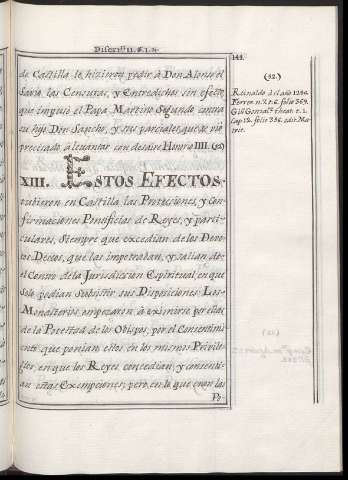 Discurso II. § I.
144.
de Castilla le hizieron pedir à Don Alonso el
Savio las Censuras, y Entredichos sin efecto,
que impuso el Papa Martino Segundo contra
su hijo Don Sancho, y sus parciales, que se vio
precisado a levantar con desaire Honorio IIII. (92)
XIII. ESTOS EFECTOS
tubieron en Castilla las Protecciones, y Con-
firmaciones Pontificias de Reyes, y parti-
culares, siempre que excedian de los Devo-
tos Deseos, que las impetraban, y salian de
el Centro de la Jurisdiccion Espiritual, en que
solo podian subsistir sus Disposiciones. Los
Monasterios empezaron à eximirse por ellas
de la Potestad de los Obispos, por el Consentimi-
ento que ponian ellos en los mismos Privile-
gios, en que los Reyes concedian, y consenti-
an estas Exempciones; pero en lo que eran las
Po-
(92)
Rainaldo à el año 1286.
Ferrer. n. 2. t. 6. folio 369.
Gil Gonzal. theat. t. 1.
Cap. 12. folio 336. edit. Ma-